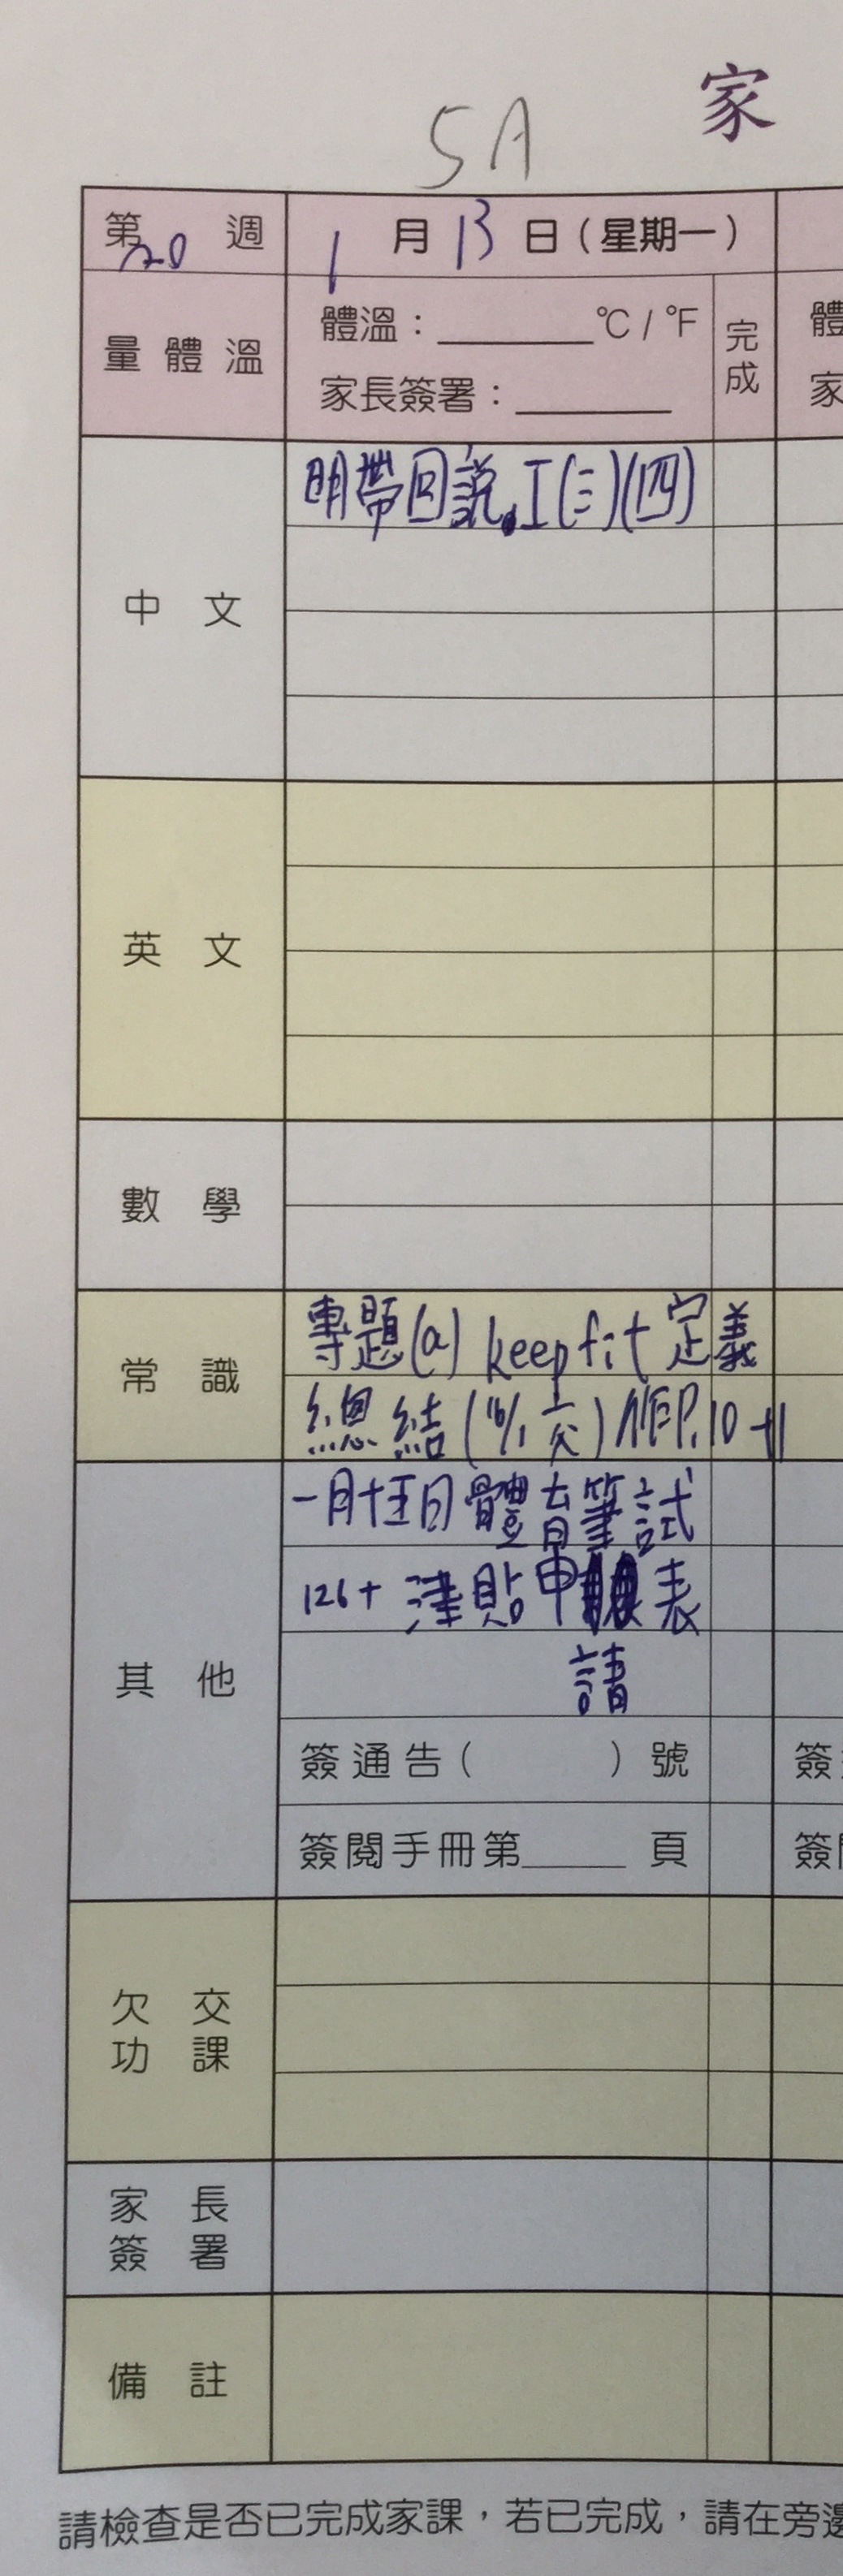 家
5A
第20週 1月13日(星期一)
量體溫 體溫:______℃/℉ 完成 體
家長簽署:______ 家
中文 明帶回說.I(三)(四)
英文
數學
常識 專題(a) keep fit 定義
總結(16/1交)作P.10-11
其他 一月十五日體育筆試
126+ 津貼申表
請
簽通告( )號
簽閱手冊第____頁 簽
欠交功課
家長簽署
備註
請檢查是否已完成家課,若已完成,請在旁邊